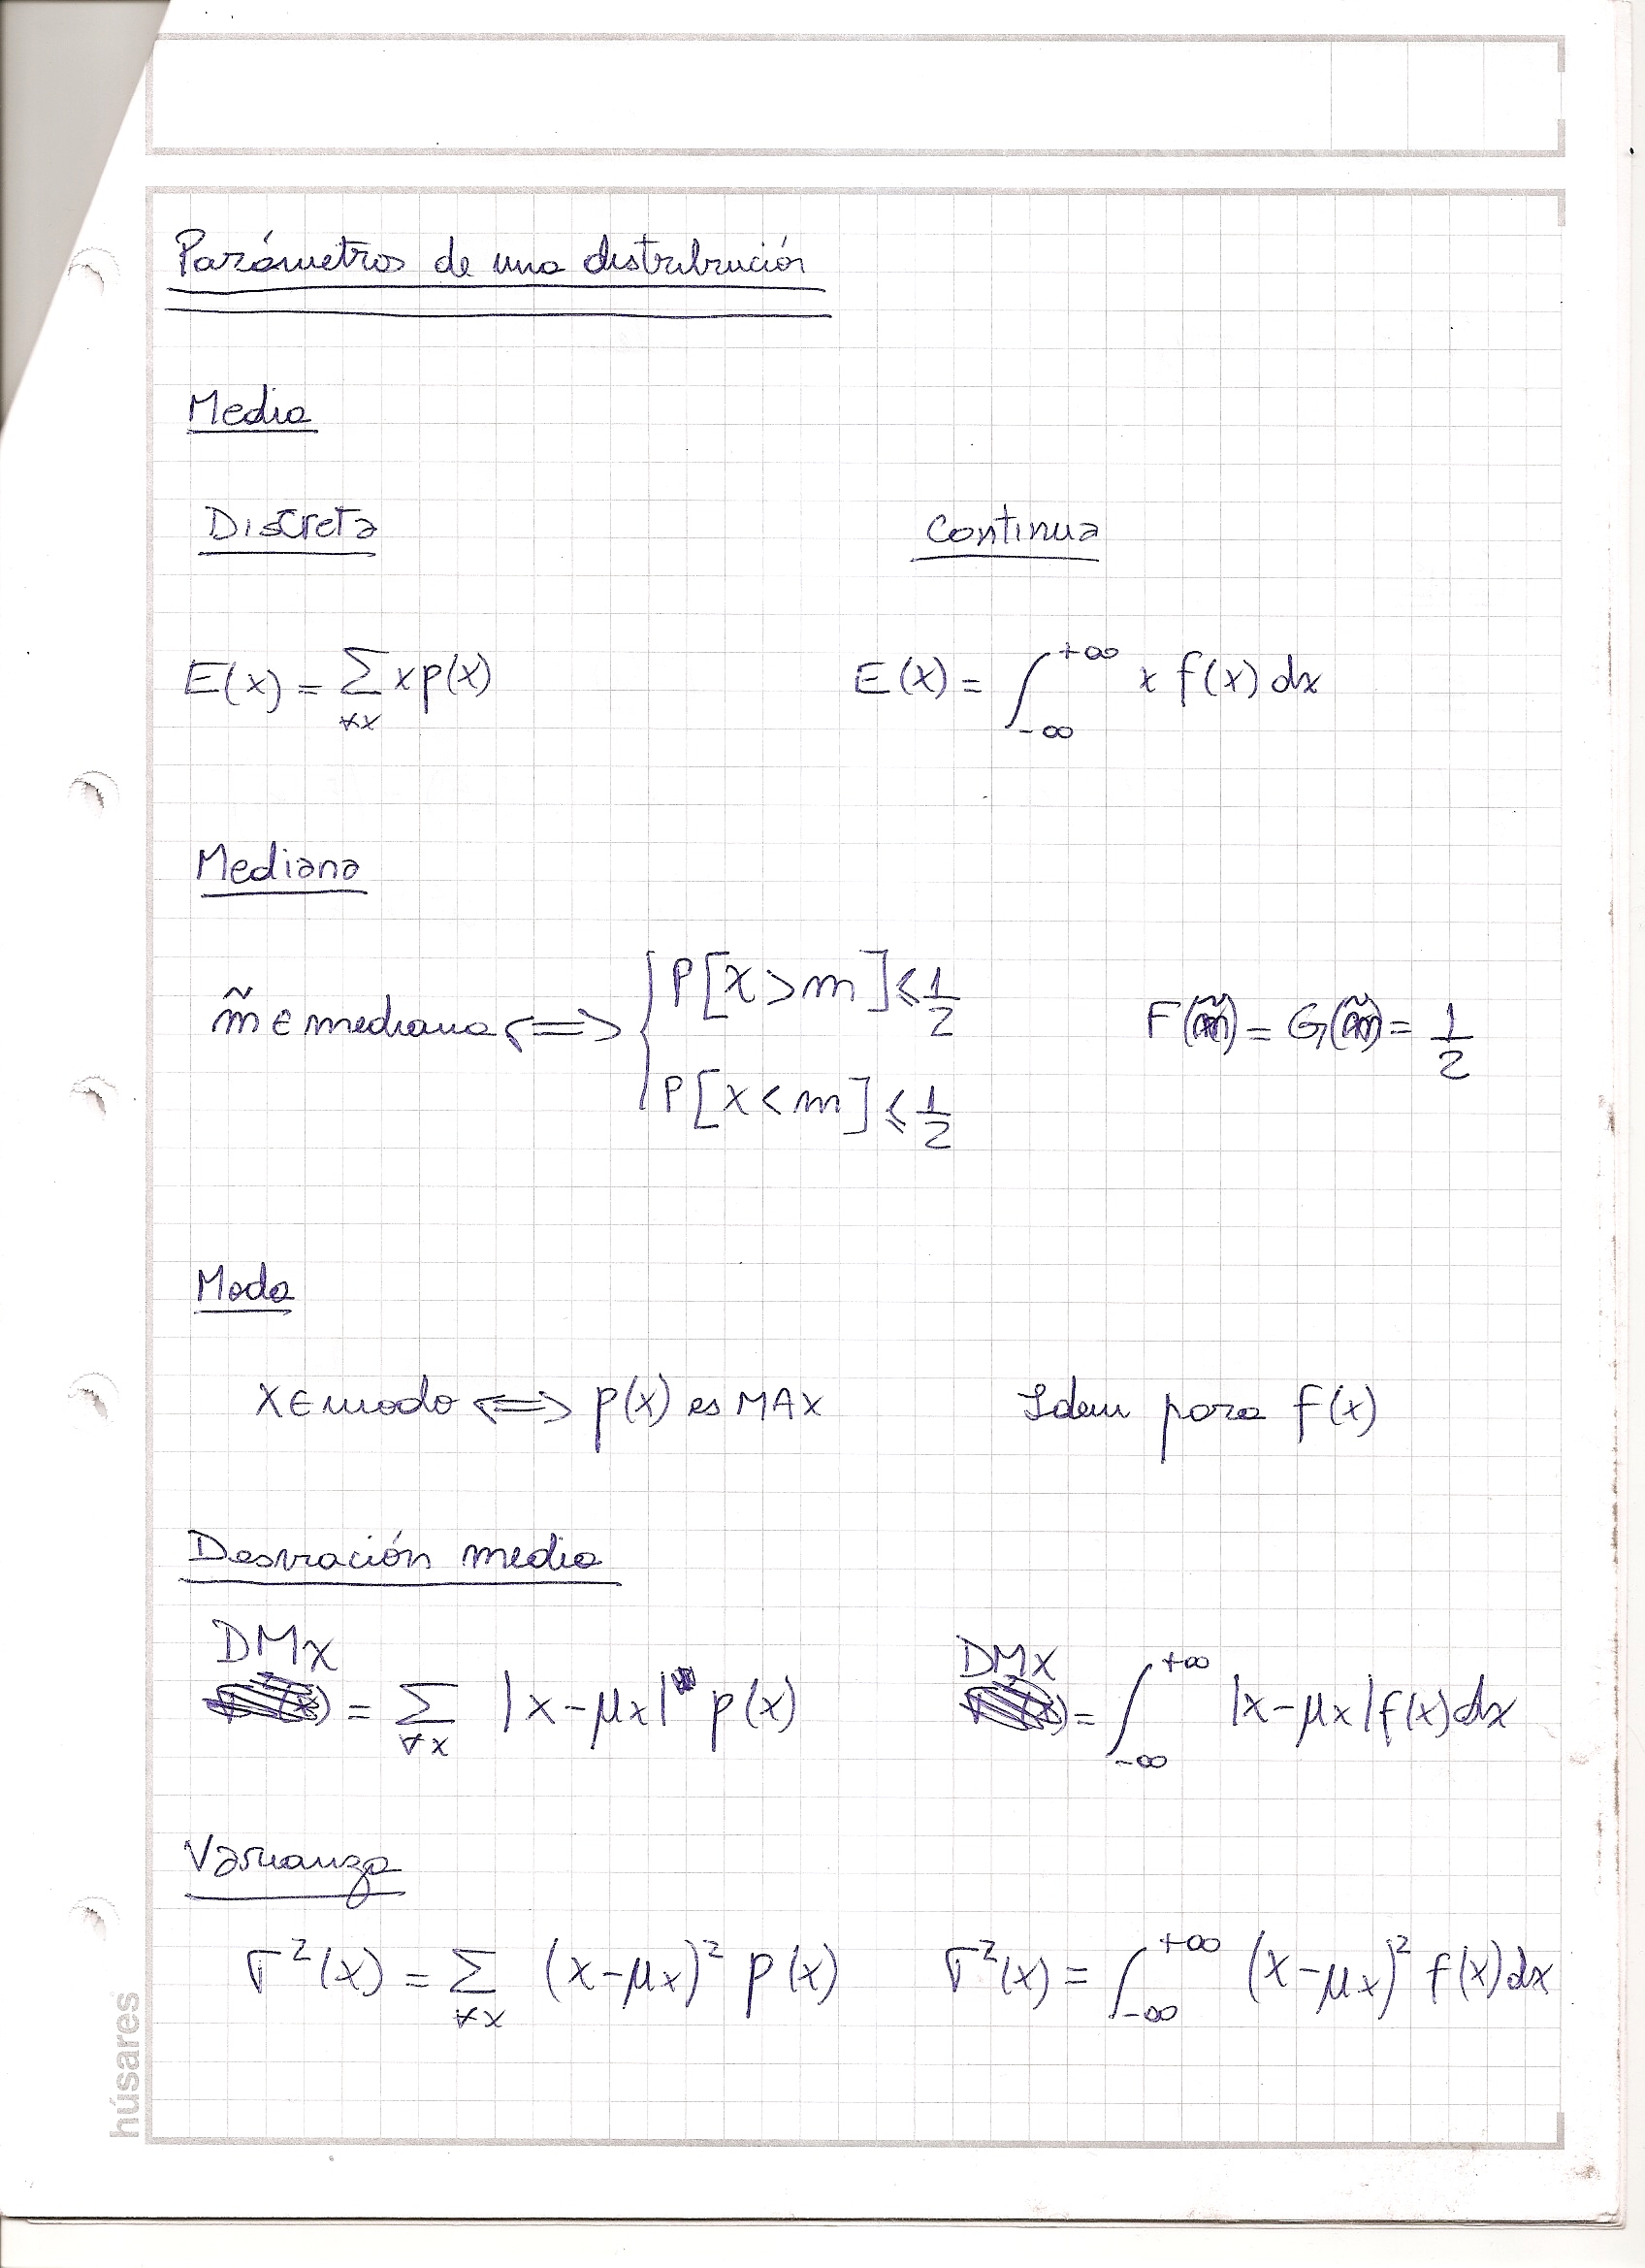 Parámetros de una distribución
Media
Discreta Continua
E(x) = ∑ x p(x) E(x) = ∫ x f(x) dx
∀x -∞ +∞
Mediana
m̃ ∈ mediana ⟺ { P[x > m] ⩽ 1/2 F(m̃) = G(m̃) = 1/2
P[x < m] ⩽ 1/2
Moda
x ∈ moda ⟺ p(x) es MAX Idem para f(x)
Desviación media
DMx = ∑ |x-μx| p(x) DMx = ∫ |x-μx| f(x) dx
∀x -∞ +∞
Varianza
σ²(x) = ∑ (x-μx)² p(x) σ²(x) = ∫ (x-μx)² f(x) dx
∀x -∞ +∞
húsares